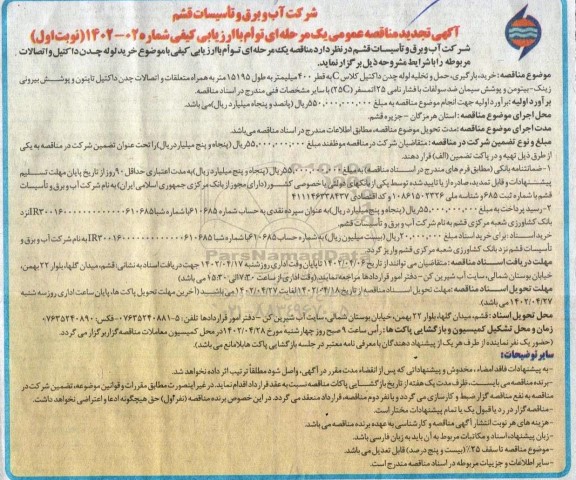 شرکت آب و برق و تأسیسات قشم
آگهی تجدید مناقصه عمومی یک مرحله ای توأم با ارزیابی کیفی شماره ۰۲-۱۴۰۲ (نوبت اول)
شرکت آب و برق و تأسیسات قشم در نظر دارد مناقصه یک مرحله ای توأم با ارزیابی کیفی با موضوع خرید لوله چدن داکتیل و اتصالات
مربوطه را با شرایط مشروحه ذیل برگزار نماید.
موضوع مناقصه: خرید، بارگیری، حمل و تخلیه لوله چدن داکتیل کلاس C به قطر ۴۰۰ میلیمتر به طول ۱۵۱۹۵ متر به همراه متعلقات و اتصالات چدن داکتیل تایتون و پوشش بیرونی
زینک-بیتومن و پوشش سیمان ضد سولفات با فشار نامی ۲۵ اتمسفر (C25) با سایر مشخصات فنی مندرج در اسناد مناقصه.
برآورد اولیه: برآورد اولیه جهت انجام موضوع مناقصه به مبلغ ۵۵۰,۰۰۰,۰۰۰,۰۰۰ ریال (پانصد و پنجاه میلیارد ریال) می باشد.
محل اجرای موضوع مناقصه: استان هرمزگان - جزیره قشم.
مدت اجرای موضوع مناقصه: مدت تحویل موضوع مناقصه، مطابق اطلاعات مندرج در اسناد مناقصه می باشد.
مبلغ و نوع تضمین شرکت در مناقصه: متقاضیان شرکت در مناقصه موظفند مبلغ ۵۵,۰۰۰,۰۰۰,۰۰۰ ریال (پنجاه و پنج میلیارد ریال) را تحت عنوان تضمین شرکت در مناقصه به یکی
از طرق ذیل تهیه و در پاکت تضمین (الف) قرار دهند.
۱- ضمانتنامه بانکی (مطابق فرم های مندرج در اسناد مناقصه) به مبلغ ۵۵,۰۰۰,۰۰۰,۰۰۰ ریال (پنجاه و پنج میلیارد ریال) به مدت اعتباری حداقل ۹۰ روز از تاریخ پایان مهلت تسلیم
پیشنهادات و قابل تمدید، صادر یا تایید شده توسط یکی از بانکهای دولتی یا خصوصی کشور (دارای مجوز از بانک مرکزی جمهوری اسلامی ایران) به نام شرکت آب و برق و تأسیسات
قشم با شماره ثبت ۶۸۵ و شناسه ملی ۱۰۸۶۱۵۰۲۳۲۶ و کد اقتصادی ۴۱۱۱۴۶۳۳۸۴۳۷
۲- رسید پرداخت به مبلغ ۵۵,۰۰۰,۰۰۰,۰۰۰ ریال (پنجاه و پنج میلیارد ریال) به عنوان سپرده نقدی به حساب شماره ۶۱۰۶۸۵ با شماره شبا نزد
بانک کشاورزی شعبه مرکزی قشم به نام شرکت آب و برق و تأسیسات قشم.
خرید اسناد: برای خرید اسناد مبلغ ۲۰,۰۰۰,۰۰۰ ریال (بیست میلیون ریال) به شماره حساب ۶۱۰۶۸۵ با شماره شبا به نام شرکت آب و برق و
تأسیسات قشم نزد بانک کشاورزی شعبه مرکزی قشم واریز گردد.
مهلت دریافت اسناد مناقصه: متقاضیان می توانند از تاریخ ۱۴۰۲/۰۴/۰۶ تا پایان وقت اداری روز شنبه ۱۴۰۲/۰۴/۱۷ جهت دریافت اسناد به نشانی: قشم، میدان گلها، بلوار ۲۲ بهمن،
خیابان بوستان شمالی، سایت آب شیرین کن - دفتر امور قراردادها مراجعه نمایند. (وقت اداری از ساعت ۷:۳۰ الی ۱۵:۳۰ می باشد)
مهلت تحویل اسناد مناقصه: مهلت تحویل اسناد مناقصه از تاریخ ۱۴۰۲/۰۴/۱۸ لغایت ۱۴۰۲/۰۴/۲۷ می باشد (آخرین مهلت تحویل پاکت ها، پایان ساعت اداری روز سه شنبه
۱۴۰۲/۰۴/۲۷ می باشد).
محل تحویل اسناد: قشم، میدان گلها، بلوار ۲۲ بهمن، خیابان بوستان شمالی، سایت آب شیرین کن - دفتر امور قراردادها تلفن: ۵-۰۷۶۳۵۲۴۰۸۸۱ فکس: ۰۷۶۳۵۲۴۰۸۹۰
زمان و محل تشکیل کمیسیون و بازگشایی پاکت ها: رأس ساعت ۹ صبح روز چهارشنبه مورخ ۱۴۰۲/۰۴/۲۸ در محل کمیسیون معاملات مناقصه گزار برگزار می گردد.
(حضور یک نفر نماینده از طرف هر یک از پیشنهاد دهندگان با معرفی نامه معتبر در جلسه بازگشایی پاکت ها بلامانع می باشد).
سایر توضیحات:
-به پیشنهادات فاقد امضاء، مخدوش و پیشنهاداتی که پس از انقضاء مدت مقرر در آگهی، واصل شود مطلقاً ترتیب اثر داده نخواهد شد.
-برنده مناقصه می بایست، ظرف مدت یک هفته از تاریخ بازگشایی پاکات مناقصه نسبت به عقد قرارداد اقدام نماید. در غیر اینصورت مطابق مقررات و قوانین موضوعه، تضمین شرکت در
مناقصه به نفع مناقصه گزار ضبط و کارسازی می گردد و با نفر دوم مناقصه، قرارداد منعقد می گردد. در این خصوص برنده مناقصه (نفر اول) حق هیچگونه ادعا و اعتراضی نخواهد داشت.
-مناقصه گزار در رد یا قبول یک یا تمام پیشنهادات مختار است.
-هزینه های هر نوبت انتشار آگهی مناقصه و کارشناسی به عهده برنده مناقصه می باشد.
-زبان پیشنهاد، اسناد و مکاتبات مربوط به آن باید به زبان فارسی باشد.
-موضوع مناقصه تا سقف ۲۵٪ (بیست و پنج درصد) قابل تعدیل می باشد.
-سایر اطلاعات و جزییات مربوطه در اسناد مناقصه مندرج است.